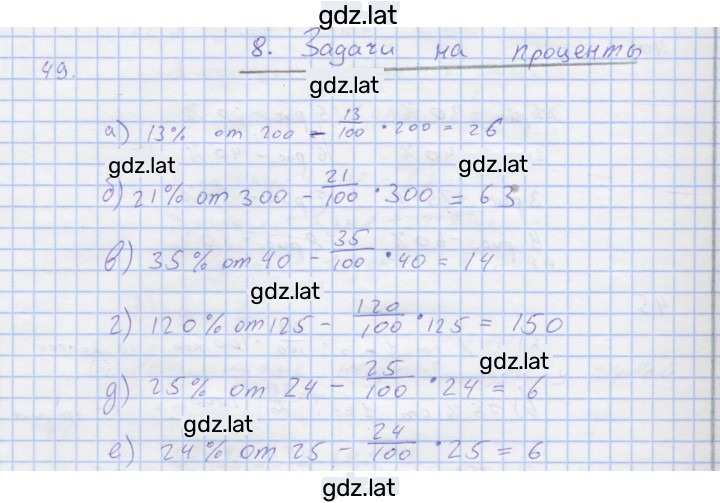 gdz.lat
8. Задачи на проценты
49.
gdz.lat
а) 13% от 200 – 13/100 · 200 = 26
gdz.lat gdz.lat
б) 21% от 300 – 21/100 · 300 = 63
в) 35% от 40 – 35/100 · 40 = 14
gdz.lat
г) 120% от 125 – 120/100 · 125 = 150
gdz.lat
д) 25% от 24 – 25/100 · 24 = 6
gdz.lat
е) 24% от 25 – 24/100 · 25 = 6
gdz.lat